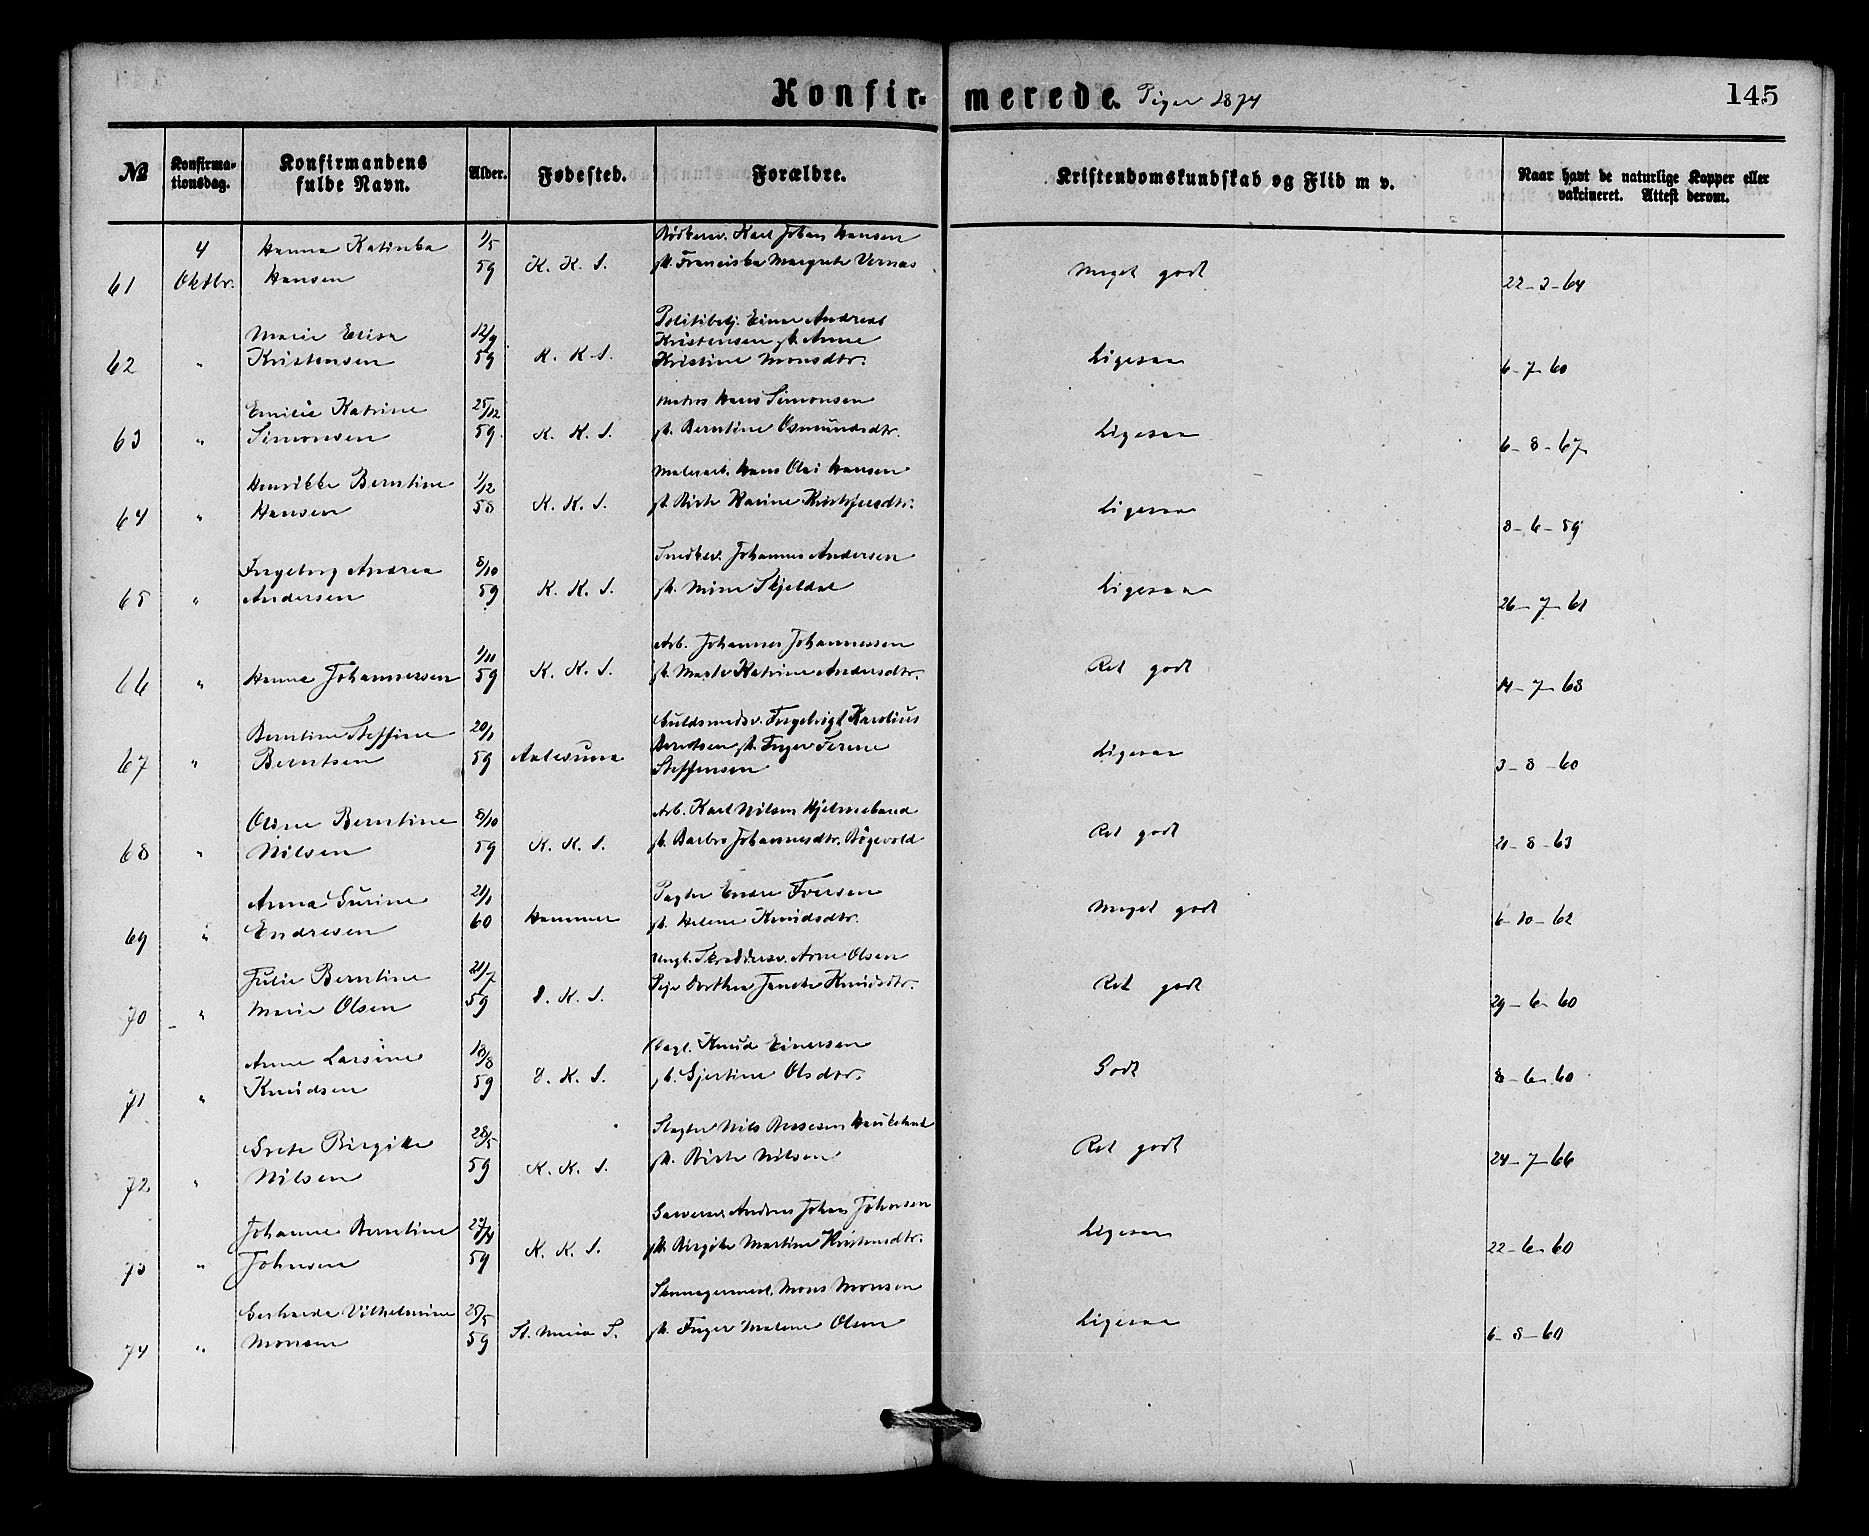 Konfirmerede. Piger 1874
145
№ Konfirmationsdag. Konfirmandens fulde Navn. Alder. Fødested. Forældre. Kristendomskundskab og Flid m v. Naar havt de naturlige Kopper eller vakcineret. Attest derom.
4 Hanna Katinka 1/5 Karl Johan Hansen
61 Oktbr. Hansen 59 K. K. S. Franciska Margrete Meget godt 22-3-64
Marie Elisa 12/9 Politibetj. Andreas
Kristensen Anne
62 " Kristensen 59 K. K. S. Kristine Monsdtr. Ligesaa 6-7-60
Emilie Katrine 25/12 Matros Hans Simonsen
63 " Simonsen 59 K. K. S. Berntine Osmundsdtr. Ligesaa 6-8-67
Henrikke Berntine 1/12 Hans Olai Hansen
64 " Hansen 58 K. K. S. Ligesaa 8-6-59
Ingeborg Andrea 8/10 Johannes Andersen
65 " Andersen 59 K. K. S. Skjeldal Ligesaa 26-7-61
1/11 Arb. Johannes Johannessen
66 " Hanna Johannessen 59 K. K. S. Marte Katrine Andersdtr. Ret godt 14-7-68
Berntine Steffine 20/1 Guldsmedsv. Ingebrigt Karolius
Berntsen Inger Serene
67 " Berntsen 59 Aalesund Steffensen Ligesaa 3-8-60
Oline Berntine 8/10 Arb. Karl Nilsen
68 " Nilsen 59 K. K. S. Barbro Johannesdtr. Ret godt 21-8-63
Anna Gurine 21/1 Endre Iversen
69 " Endresen 60 Hammer Helene Knudsdtr. Meget godt 6-10-62
Julie Berntine 21/7 Ungk. Skræddersv. Arne Olsen
70 " Marie Olsen 59 D. K. S. Pige Dorthea Knudsdtr. Ret godt 29-6-60
Anne Larsine 13/8 Knud Einersen
71 " Knudsen 59 D. K. S. Gjertine Olsdtr. Godt 8-6-60
Grete Birgitte 28/5 Slagter Nils Haukeland
72 " Nilsen 59 K. K. S. Nilsen Ret godt 24-7-66
Johanne Berntine Garversv. Andreas Johan Johnsen
73 " Johnsen 59 K. K. S. Birgitte Martine Kristensdtr. Ligesaa 22-6-60
Gerharda Vilhelmine 25/5 Skomagermest. Mons Monsen
74 " Monsen 59 St. Maria S. Inger Malene Olsen Ligesaa 6-8-60